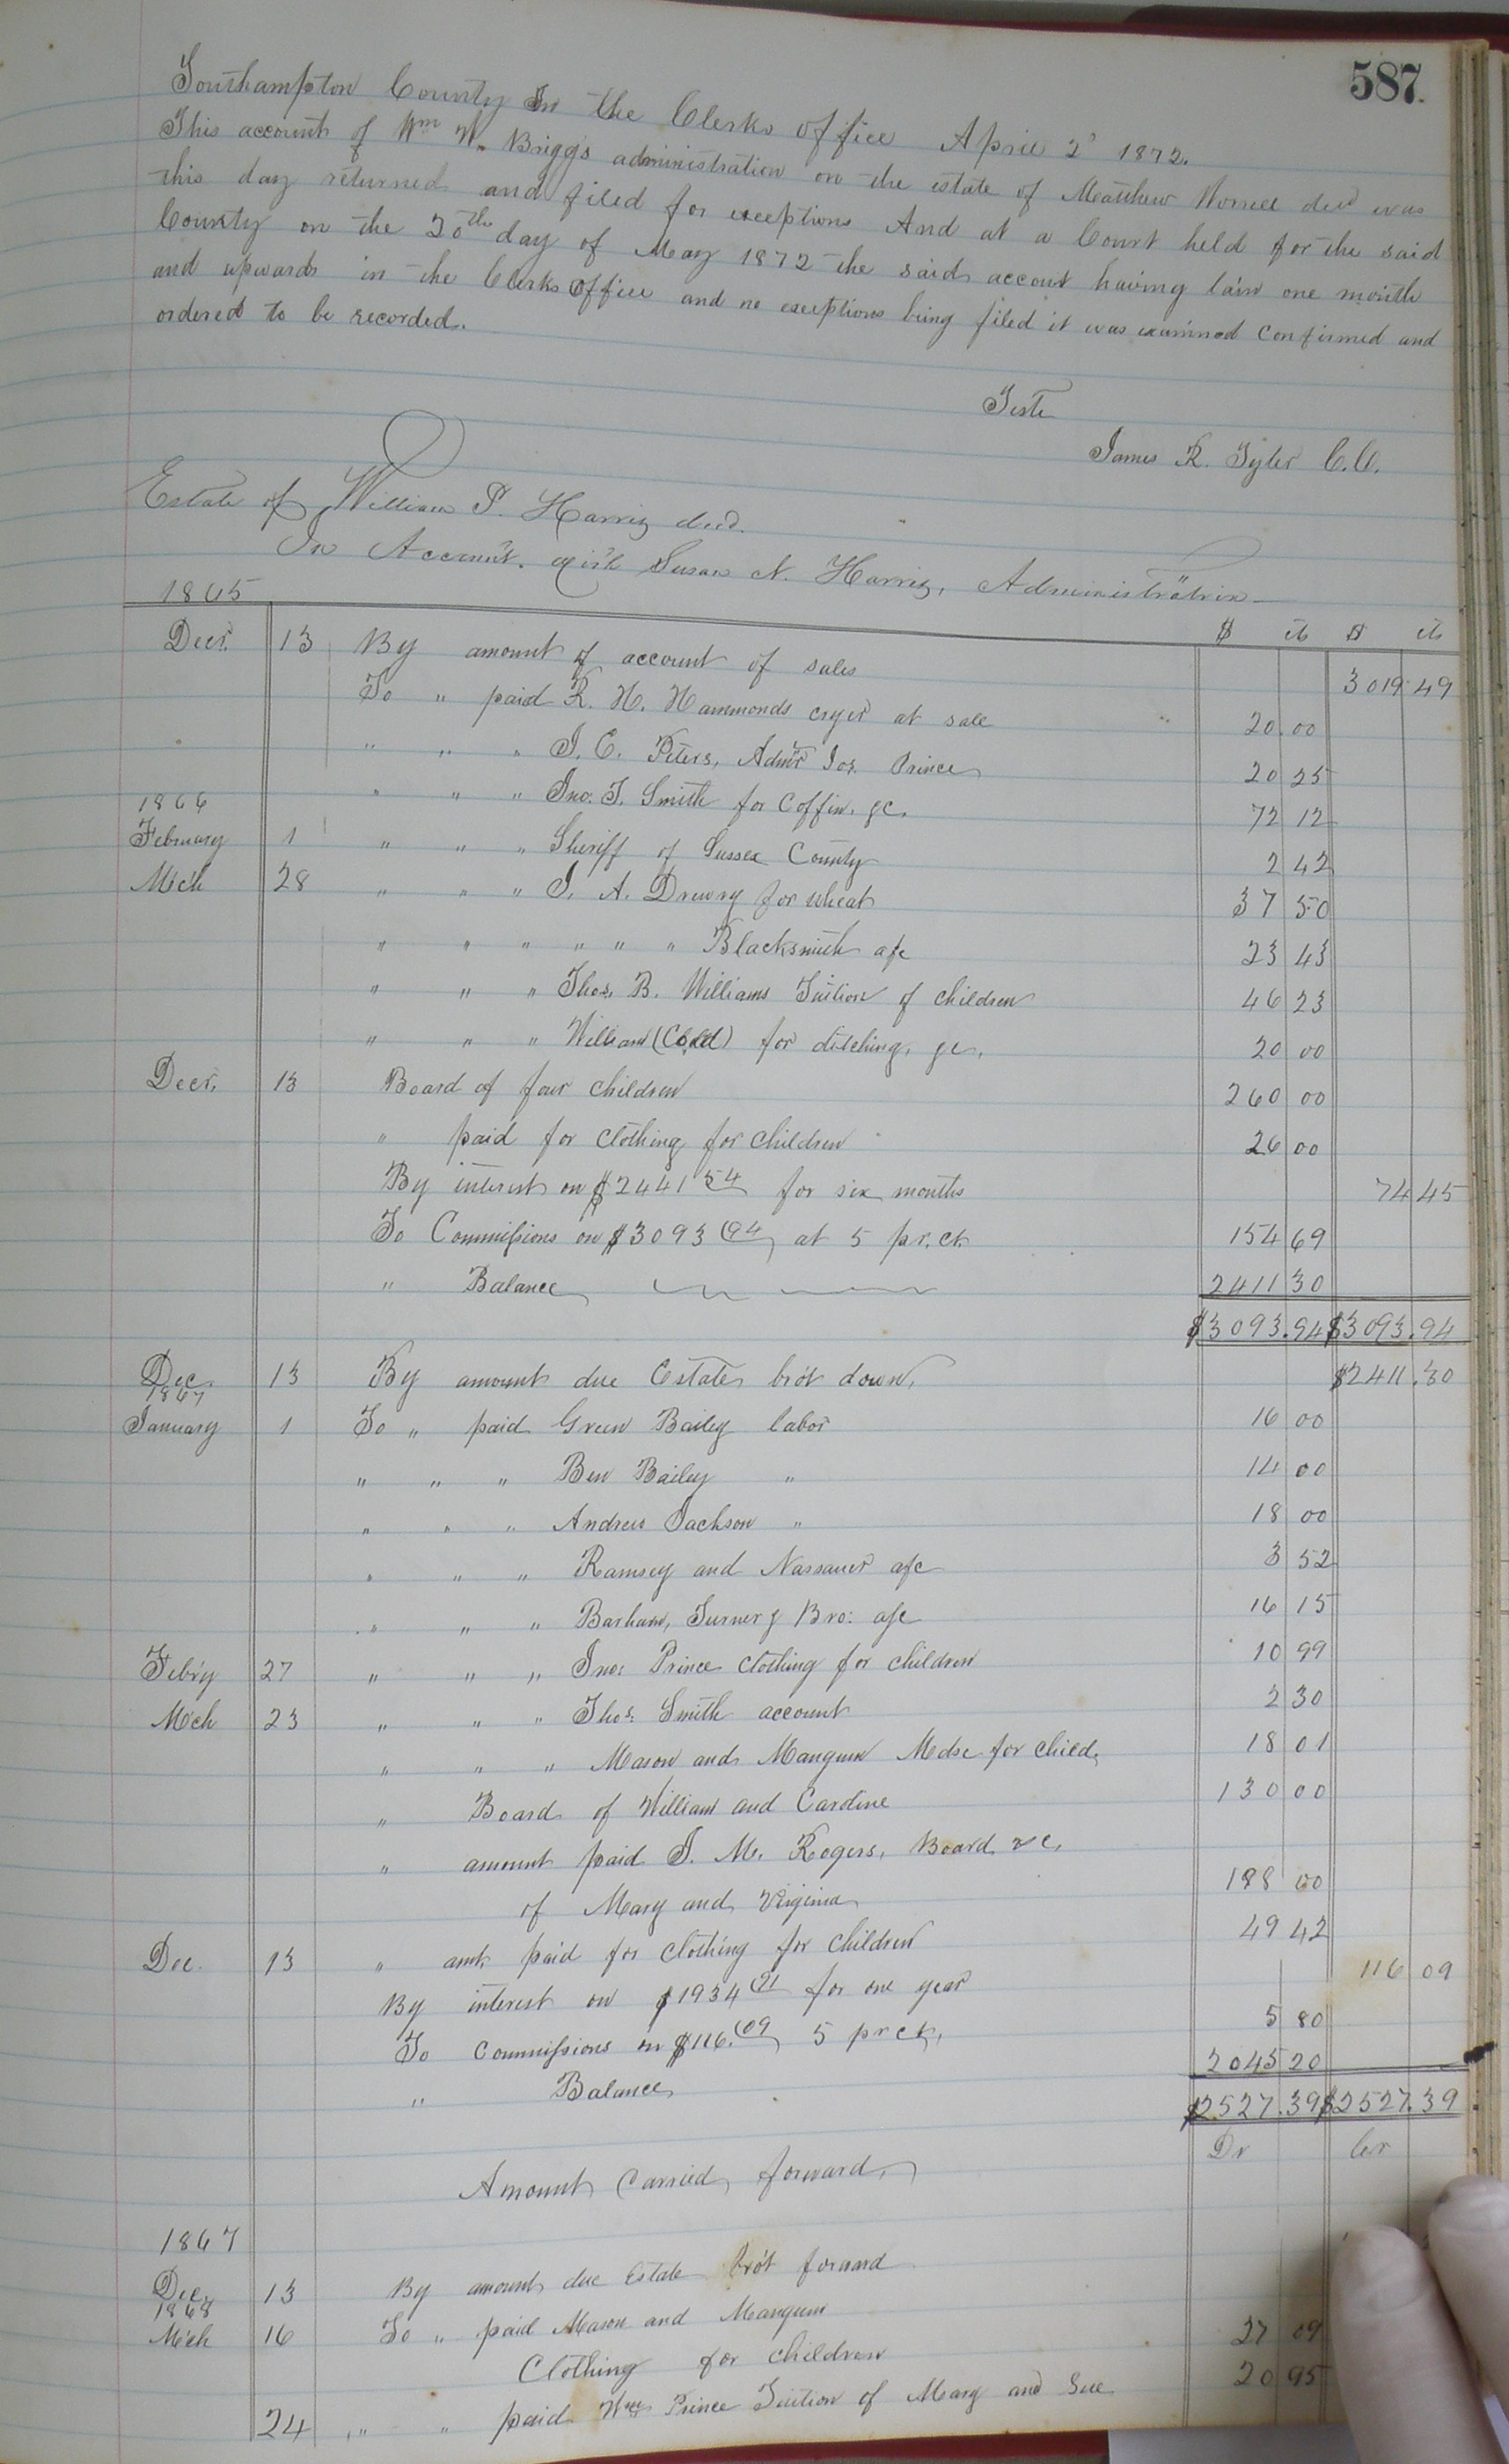 587.
Southampton County In the Clerks office April 2d 1872.
This account of Wm W. Briggs administration on the estate of Matthew Worrell decd was
this day returned and filed for exceptions And at a Court held for the said
County on the 20th day of May 1872 the said account having lain one month
and upwards in the Clerks Office and no exceptions being filed it was examined confirmed and
ordered to be recorded.
Teste
James R. Tyler C.C.
Estate of William P. Harris decd.
In Account with Susan N. Harris, Administratrix
1865
$ cts $ cts
Decr. 13 By amount of account of sales 3019 49
To " paid R. H. Hammonds cryer at sale 20.00
" " " J. C. Peters, Admr Jos. Prince 20 25
" " " Jno. T. Smith for Coffin, &c. 72 12
1866
February 1 " " " Sheriff of Sussex County 2 42
Mch 28 " " " J. A. Drewry for wheat 37 50
" " " " " " Blacksmith a/c 23 43
" " " Thos. B. Williams Tuition of children 46 23
" " " William (Cold) for ditching, &c. 20 00
Decr. 13 Board of four children 260 00
" paid for clothing for children 26 00
By interest on $2441 54 for six months 74 45
To Commissions on $3093 94 at 5 pr. ct. 154 69
" Balance 2411 30
$3093.94 $3093.94
Dec. 13 By amount due Estate bro't down, $2411.30
1867
January 1 To " paid Green Bailey labor 16 00
" " " Ben Bailey " 14 00
" " " Andrew Jackson " 18 00
" " " Ramsey and Nassauer a/c 3 52
" " " Barham, Turner & Bro: a/c 16 15
Feb'ry 27 " " " Jno: Prince clothing for children 10 99
Mch 23 " " " Thos. Smith account 2 30
" " " Mason and Mangum Mdse for child. 18 01
" Board of William and Caroline 130 00
" amount paid J. M. Rogers, Board &c,
of Mary and Virginia 198 00
Dec. 13 " amt. paid for clothing for children 49 42
By interest on $1934 91 for one year 116 09
To Commissions on $116.09 5 pr ct. 5 80
" Balance 2045 20
$2527.39 $2527.39
Amount Carried forward, Dr Cr
1867
Dec. 13 By amount due Estate bro't forward
1868
Mch 16 To " paid Mason and Mangum
Clothing for children 27 09
24 " " paid Wm Prince Tuition of Mary and Sue 20 95